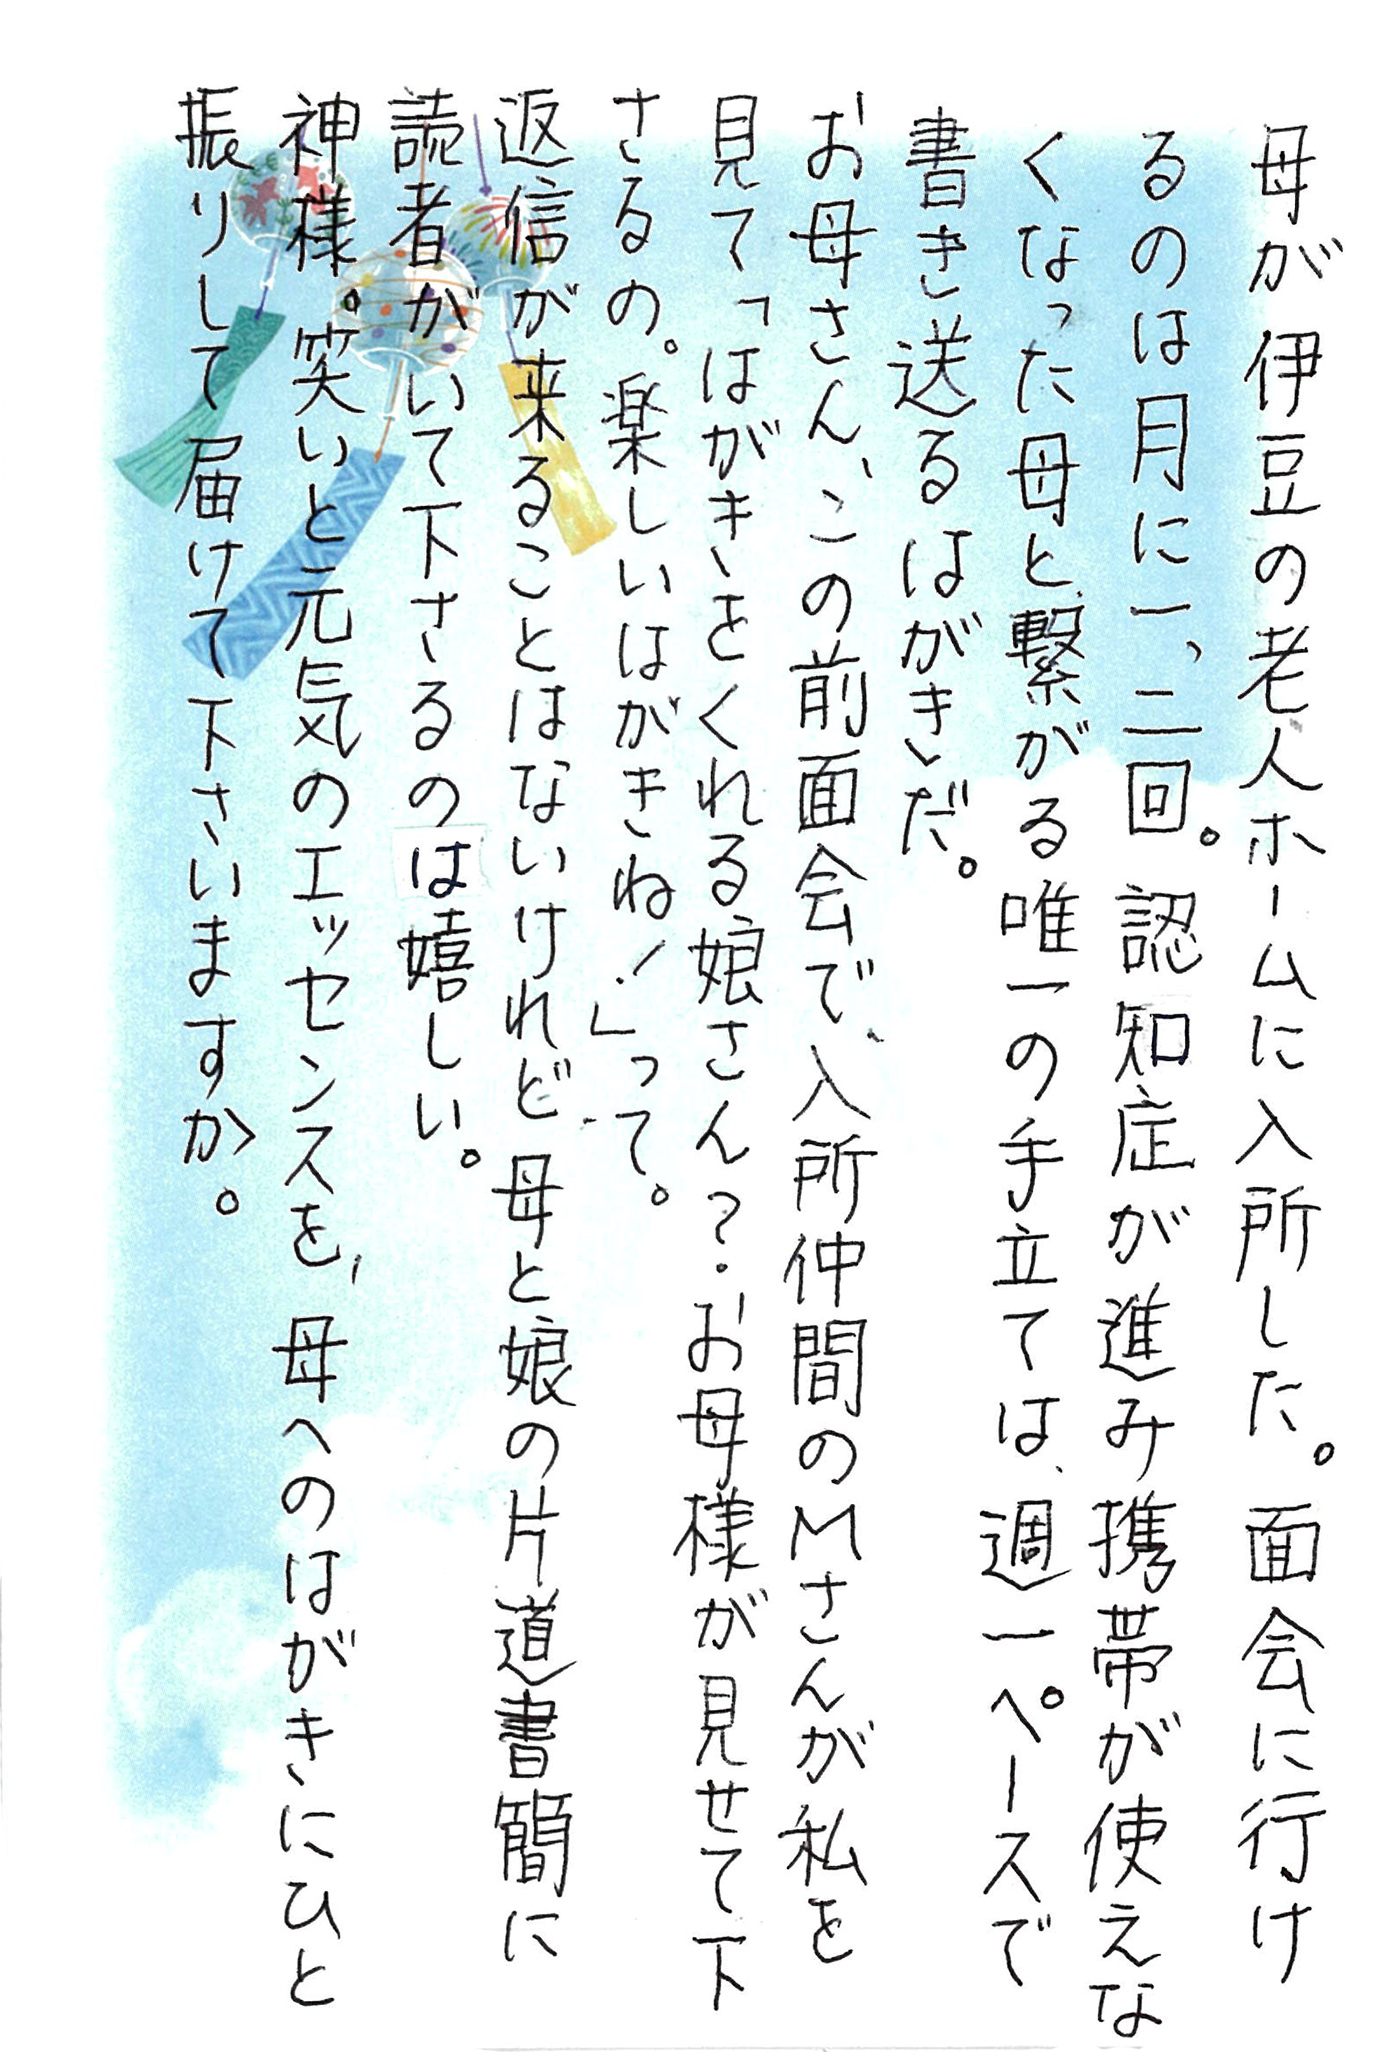 母が伊豆の老人ホームに入所した。面会に行け
るのは月に一、二回。認知症が進み携帯が使えな
くなった母と繋がる唯一の手立ては、週一ペースで
書き送るはがきだ。
お母さん、この前面会で、入所仲間のMさんが私を
見て「はがきをくれる娘さん?お母様が見せて下
さるの。楽しいはがきね!」って。
返信が来ることはないけれど母と娘の片道書簡に
読者がいて下さるのは嬉しい。
神様。笑いと元気のエッセンスを、母へのはがきにひと
振りして届けて下さいますか。